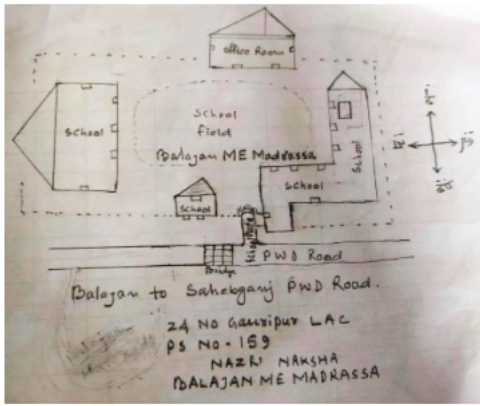 Office Room
School
School
field
Balajan ME Madrassa
School
School
School
PWD Road
Bridge
Balajan to Sahebganj PWD Road.
24 No Gauripur LAC
PS No - 159
NAZRI NAKSHA
BALAJAN ME MADRASSA